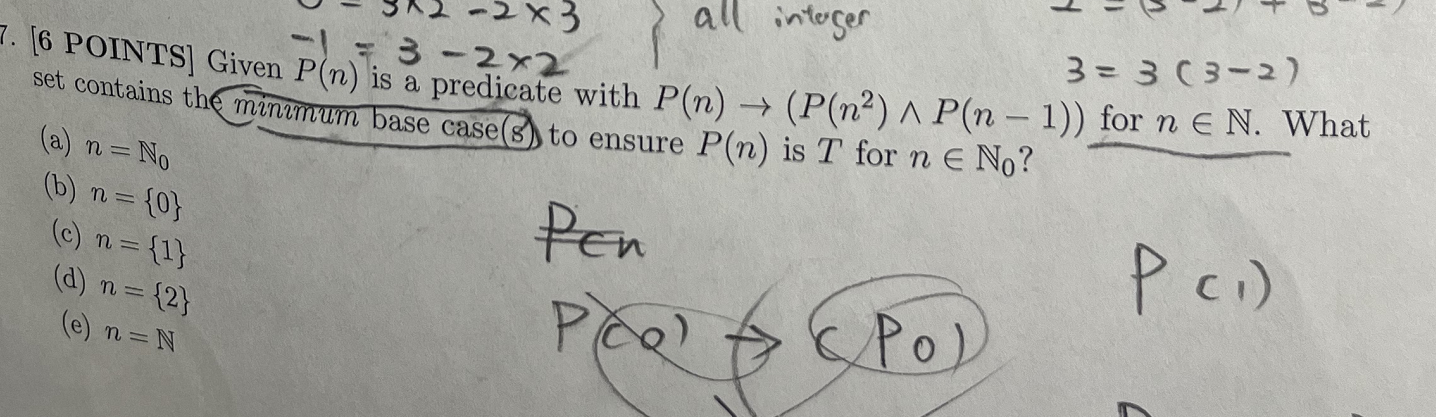 3×2 -2×3 } all integer
-1 = 3 -2×2
3 = 3(3-2)
7. [6 POINTS] Given P(n) is a predicate with P(n) → (P(n²) ∧ P(n − 1)) for n ∈ N. What
set contains the minimum base case(s) to ensure P(n) is T for n ∈ N₀?
(a) n = N₀
(b) n = {0}
(c) n = {1}
(d) n = {2}
(e) n = N
P(n
P(1)
P(0) → (P0)